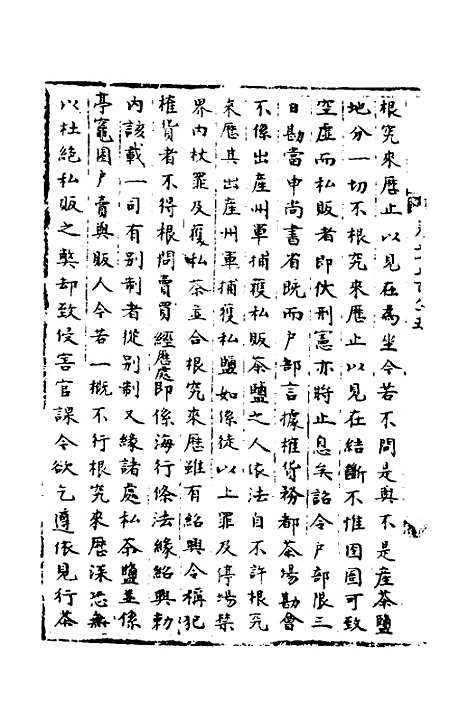 根究來歷止以見在為坐令若不問是與不是產茶鹽
地分一切不根究來歷止以見在結斷不惟囹圄可致
空虛而私販者即伏刑憲亦將止息矣詔令户部限三
日勘當申尚書省既而户部言據榷貨務都茶場勘會
不係出產州軍捕獲私販茶鹽之人依法自不許根究
來歷其出產州軍捕獲私鹽如係徒以上罪及停塲禁
界内杖罪及獲私茶並合根究來歷雖有紹興令稱犯
榷貨者不得根問賣買經歷處即係海行條法緣紹興勑
内該載一司有别制者從别制又緣諸處私茶鹽並係
亭竈園户賣與販人令若一概不行根究來歷深恐無
以杜絶私販之弊却致侵害官課今欲乞遵依見行茶